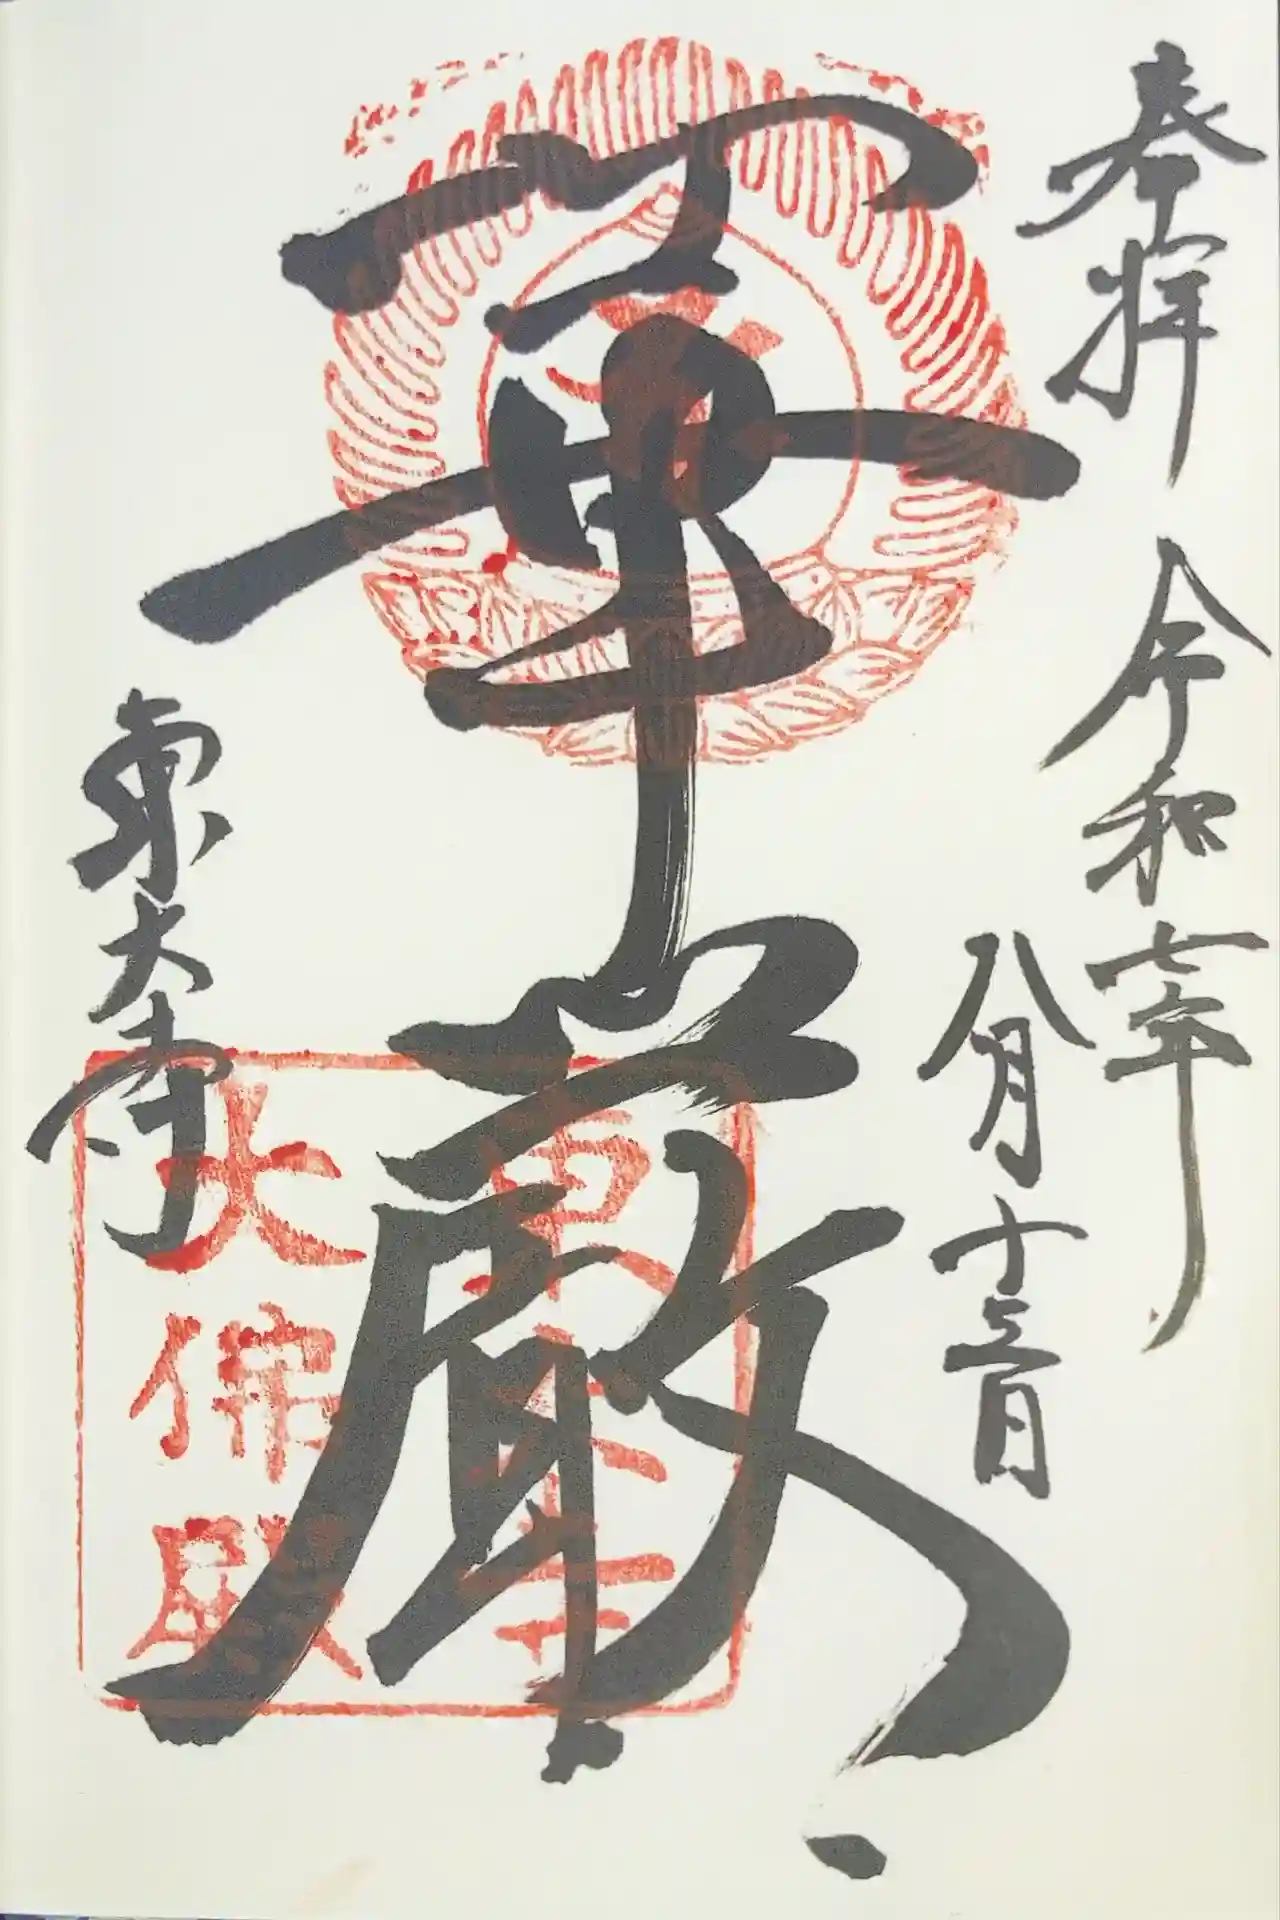 奉拝
令和七年
八月十三日
華厳
東大寺
東大寺
大佛殿